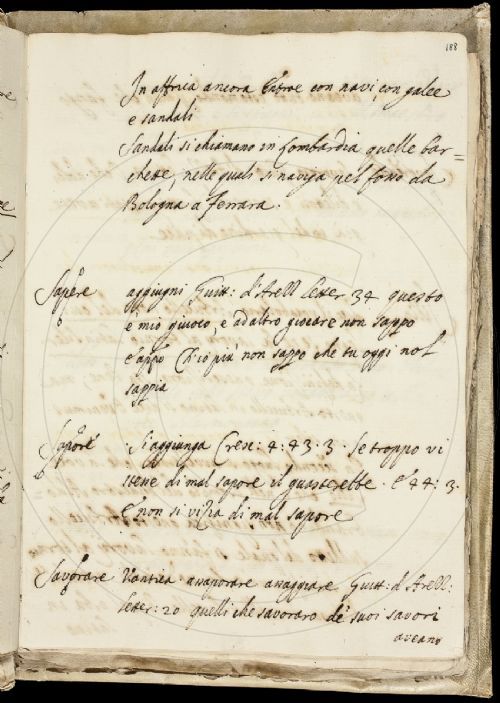 188
In affrica ancora Entrae con navi, con galee
e sandali
Sandali si chiamano in Lombardia quelle bar=
chette, nelle quali si naviga nel fosso da
Bologna a Ferrara.
Sapere aggiugni Guitt: d'Arell letter 34 questo
è mio giuoco, e ad altro giocare non sappo
e appo Ch'io più non sappo che tu oggi nol
sappia
Sapore Si aggiunga Cresc: 4: 43: 3. Se troppo vi
stette di mal sapore il guasterebbe. E 44: 3.
E non si vizia di mal sapore
Savorare V. antica. assaporare assaggiare Guitt: d Arell:
letter: 20 quelli che savoraro de' suoi savori
aveano